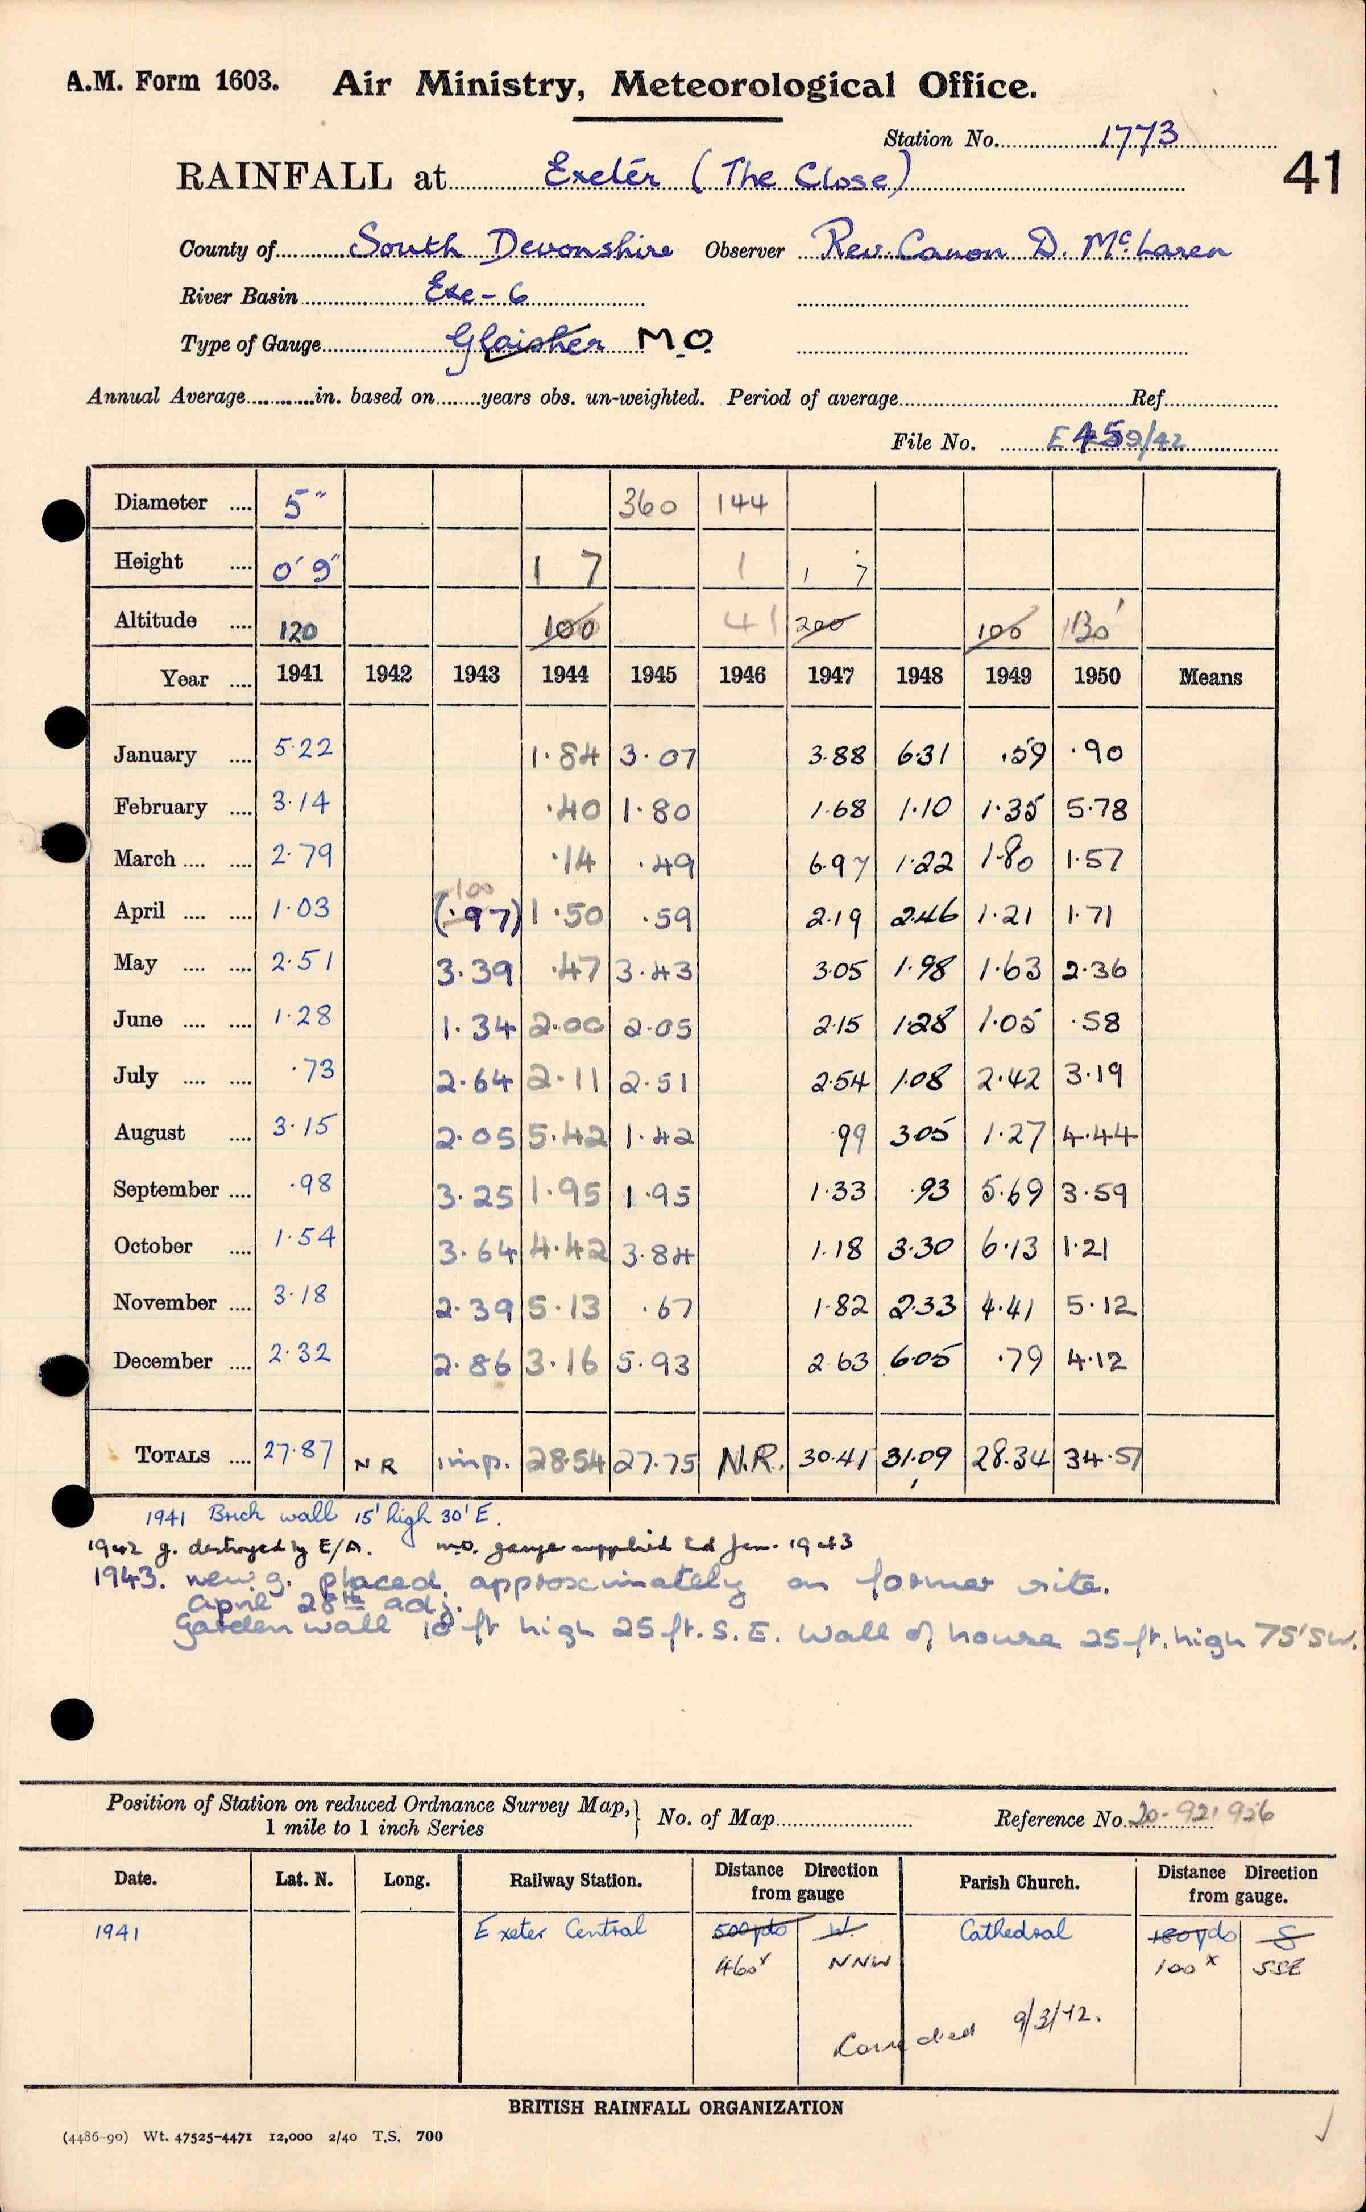 A.M. Form 1603. Air Ministry, Meteorological Office.
Station No. 1773
41
RAINFALL at Exeter (The Close)
County of South Devonshire Observer Rev. Canon D. McLaren
River Basin Exe-6
Type of Gauge Glaisher M.O.
Annual Average in. based on years obs. un-weighted. Period of average Ref.
File No. E 4539/42
Diameter 5" 360 144
Height 0' 9" 1 7 1 1 7
Altitude 120 100 41 200 100 130'
Year 1941 1942 1943 1944 1945 1946 1947 1948 1949 1950 Means
January 5.22 1.84 3.07 3.88 6.31 .59 .90
February 3.14 .40 1.80 1.68 1.10 1.35 5.78
March 2.79 .14 .49 6.97 1.22 1.80 1.57
100
April 1.03 (.97) 1.50 .59 2.19 2.46 1.21 1.71
May 2.51 3.39 .47 3.43 3.05 1.98 1.63 2.36
June 1.28 1.34 2.00 2.05 2.15 1.28 1.05 .58
July .73 2.64 2.11 2.51 2.54 1.08 2.42 3.19
August 3.15 2.05 5.42 1.42 .99 3.05 1.27 4.44
September .98 3.25 1.95 1.95 1.33 .93 5.69 3.59
October 1.54 3.64 4.42 3.84 1.18 3.30 6.13 1.21
November 3.18 2.39 5.13 .67 1.82 2.33 4.41 5.12
December 2.32 2.86 3.16 5.93 2.63 6.05 .79 4.12
TOTALS 27.87 NR imp. 28.54 27.75 N.R. 30.41 31.09 28.34 34.57
1941 Brick wall 15' high 30' E.
1942 g. destroyed by E/A. M.O. gauge supplied 2d Jan. 1943
1943. new g. placed approximately on former site.
April 28th adj.
Garden wall 10 ft high 25 ft. S.E. Wall of house 25 ft. high 75' SW.
Position of Station on reduced Ordnance Survey Map, 1 mile to 1 inch Series } No. of Map Reference No. 20-921926
Date. Lat. N. Long. Railway Station. Distance Direction from gauge Parish Church. Distance Direction from gauge.
1941 Exeter Central 500yds W. Cathedral 180yds S
460x NNW 100x SSE
9/3/42.
BRITISH RAINFALL ORGANIZATION
(4486-90) Wt. 47525-4471 12,000 2/40 T.S. 700